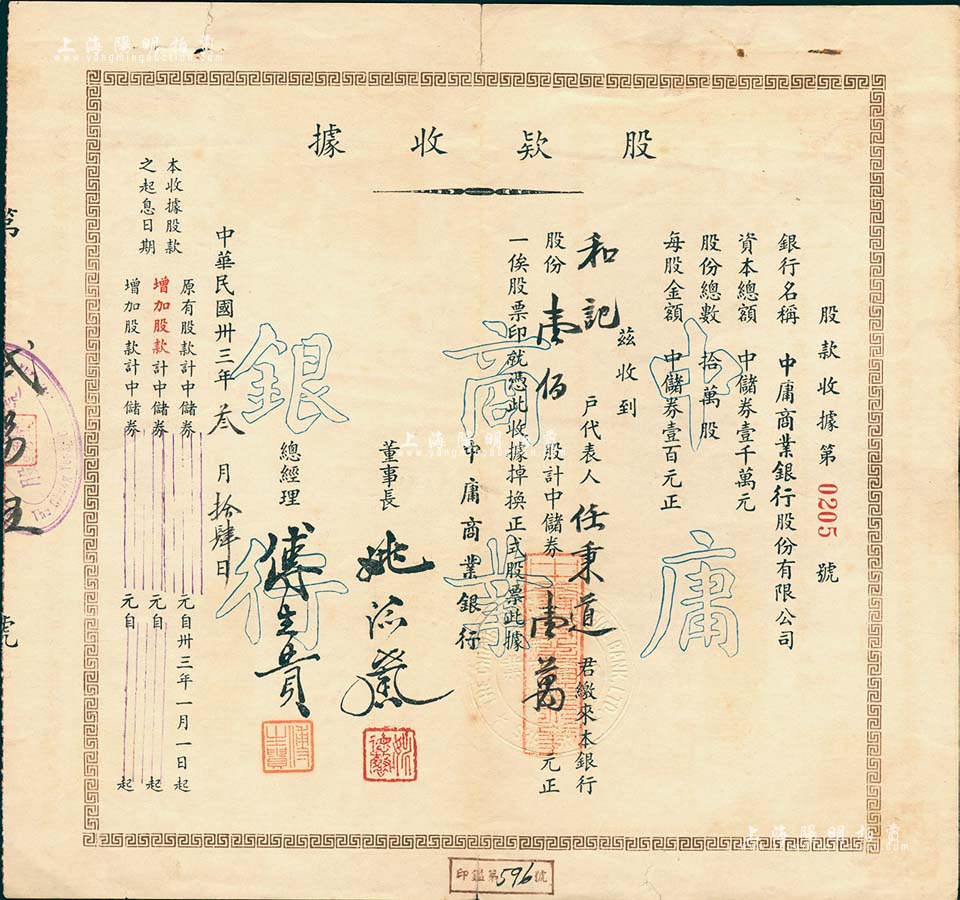 股款收據
股款收據第0205號
銀行名稱 中庸商業銀行股份有限公司
資本總額 中儲券壹千萬元
股份總數 拾萬股
每股金額 中儲券壹百元正
茲收到
和記 戶代表人 任秉道 君繳來本銀行
股份 壹佰 股計中儲券 壹萬 元正
一俟股票印就憑此收據掉換正式股票此據
中庸商業銀行
董事長
總經理 傅生貴
中華民國卅三年叁月拾肆日
本收據股款之起息日期
原有股款計中儲券 元自卅三年一月一日起
增加股款計中儲券 元自 起
增加股款計中儲券 元自 起
中庸
商業
銀行
第
號
印鑑第596號
上海陽明拍賣
www.yangmingauction.com
上海陽明拍賣
www.yangmingauction.com
上海陽明拍賣
www.yangmingauction.com